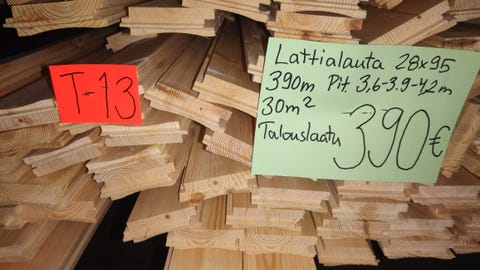 T-13
Lattialauta 28x95
390m Pit. 3,6-3.9-4,2m
30m²
Talouslaatu 390€